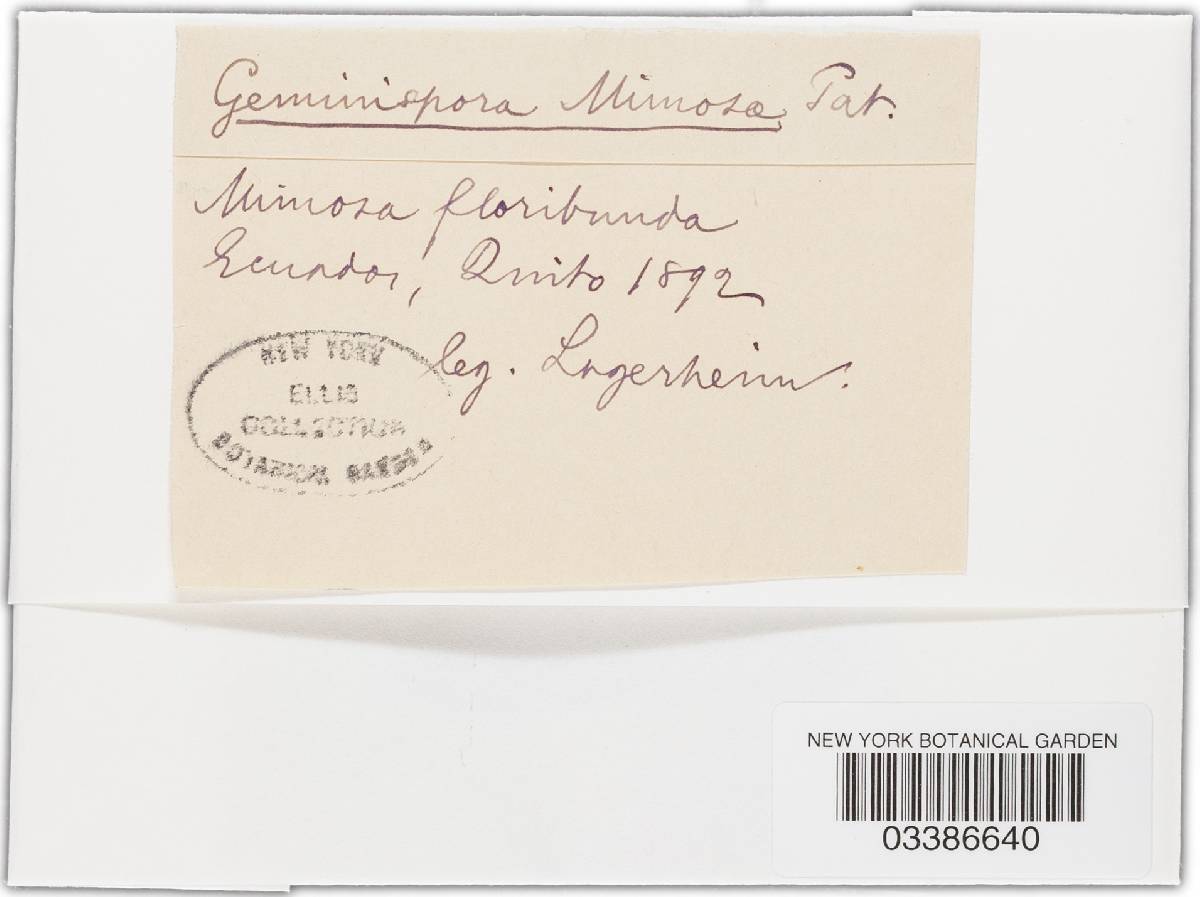 Geminispora Mimosæ Pat.
Mimosa floribunda
Ecuador, Quito 1892
leg. Lagerheim.
NEW YORK
ELLIS
COLLECTION
BOTANICAL GARDEN
NEW YORK BOTANICAL GARDEN
03386640